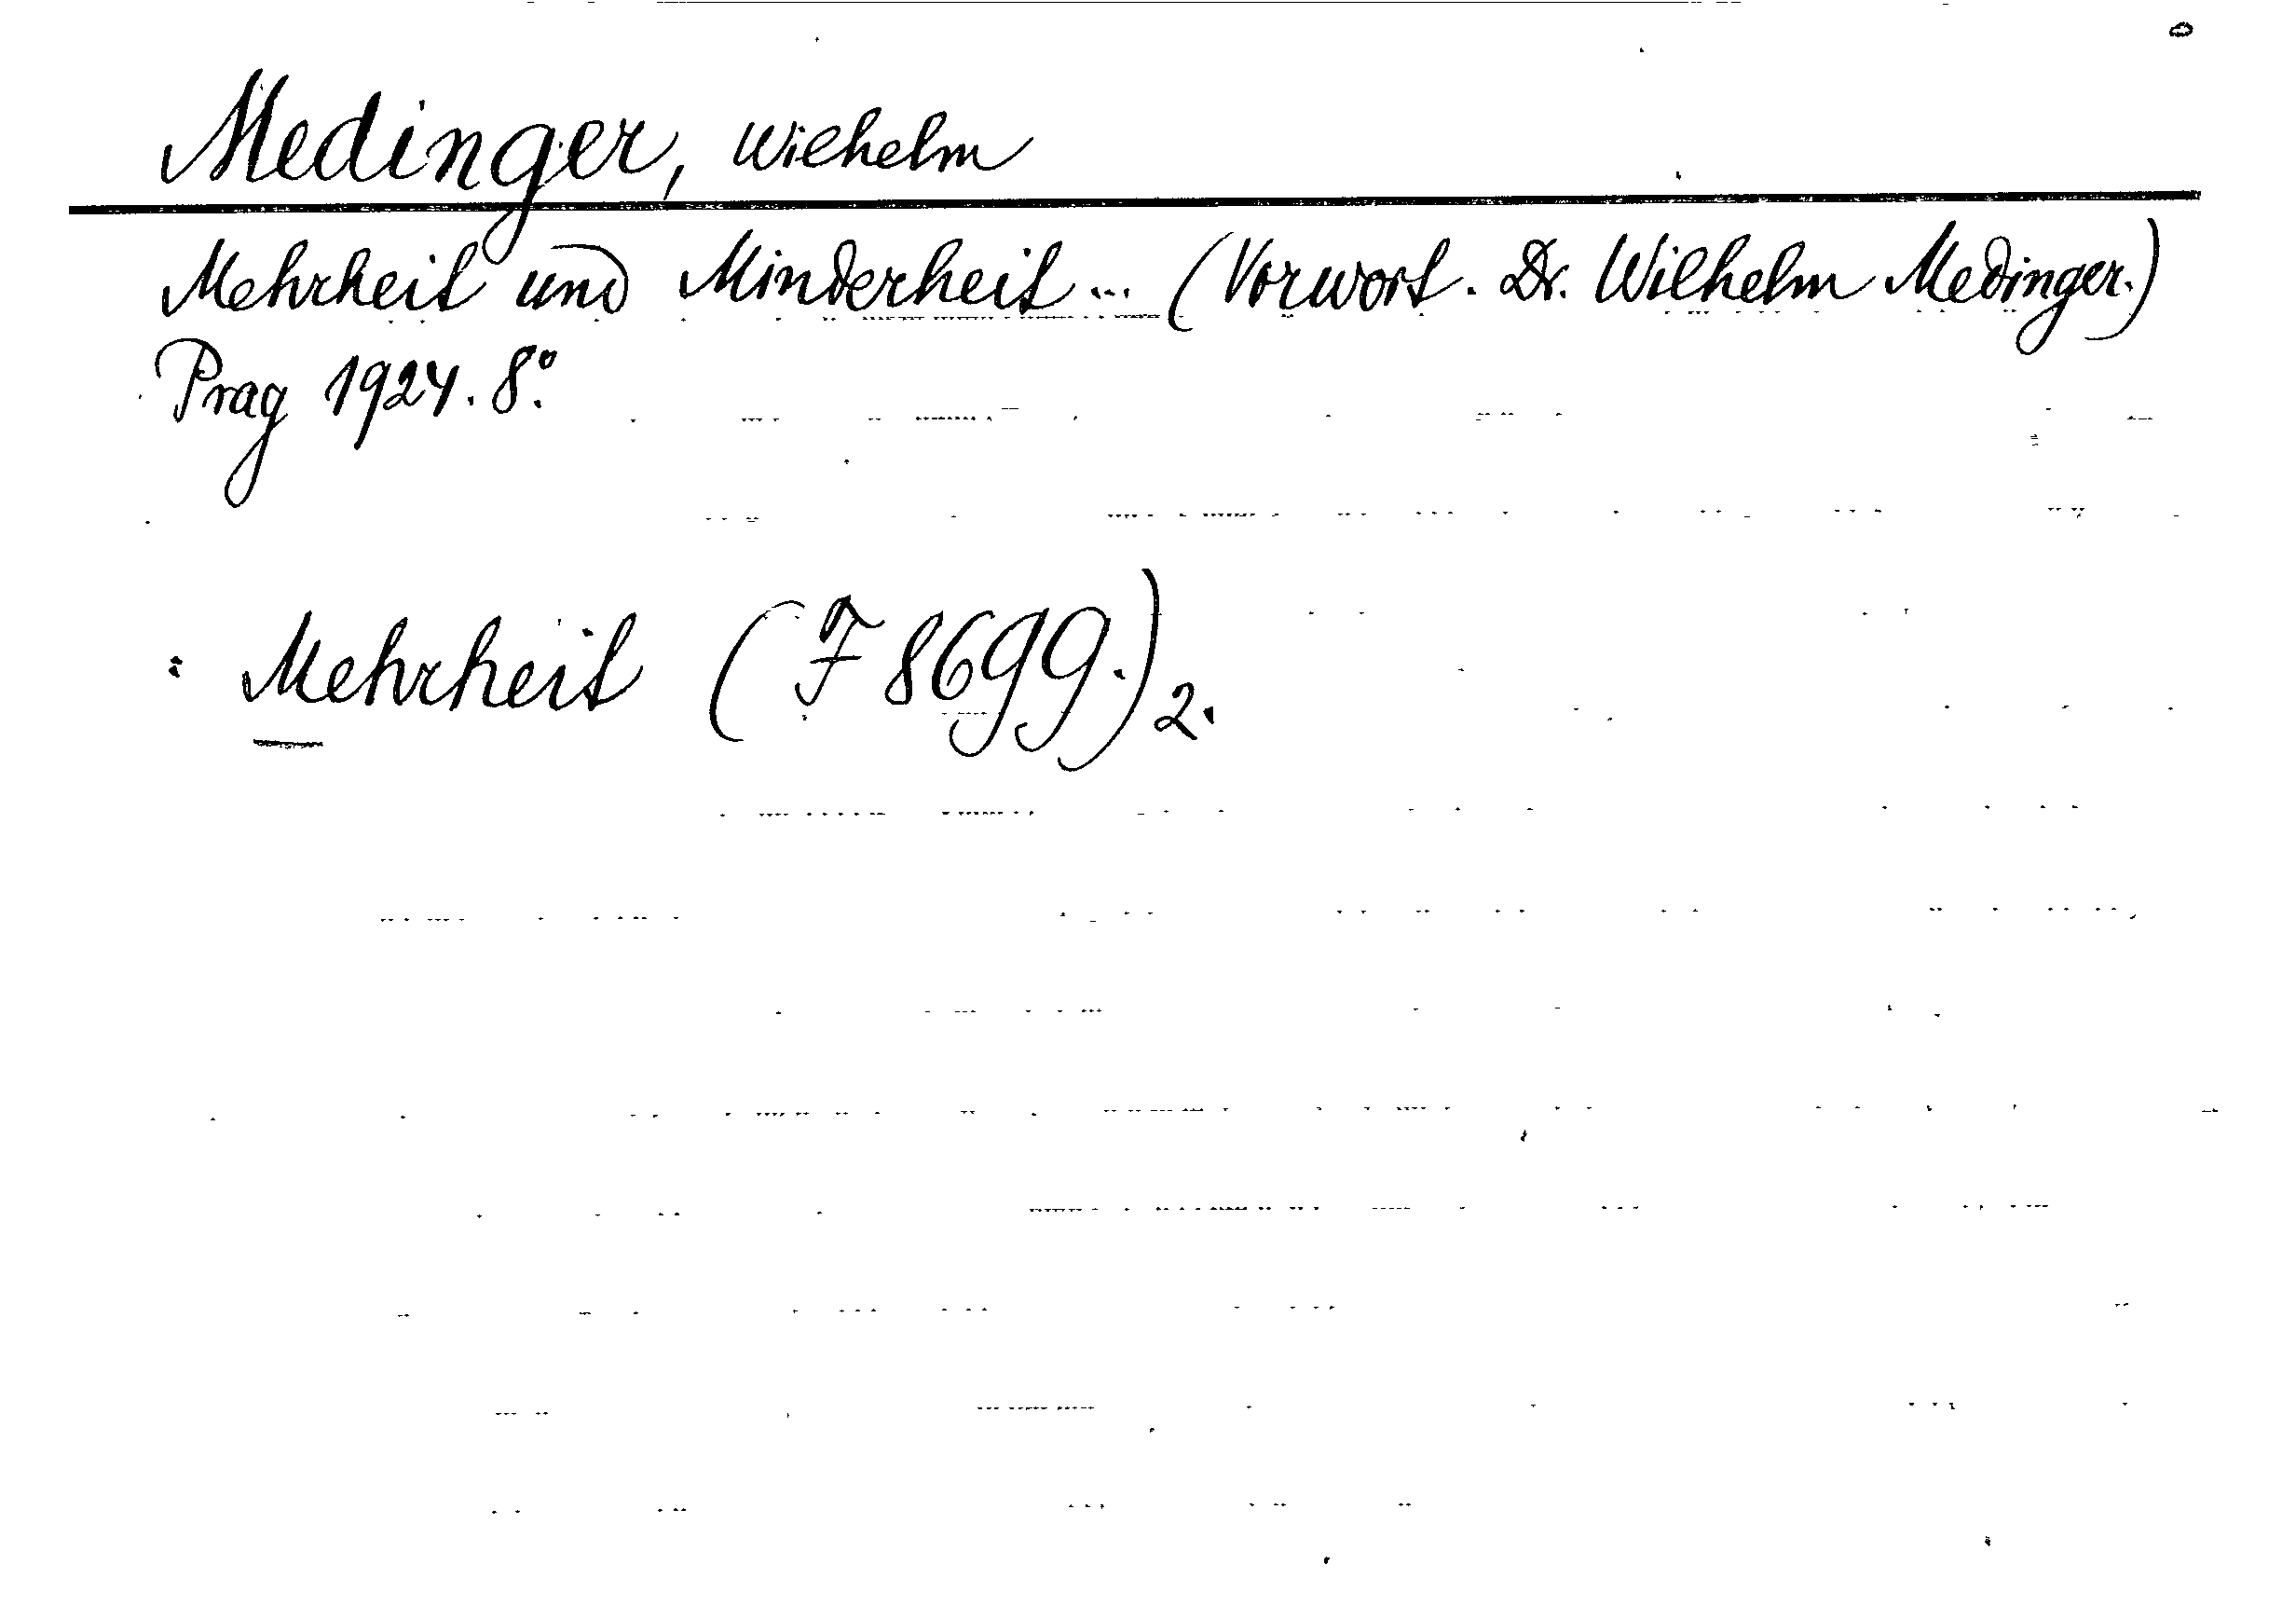 Medinger, Wilhelm
Mehrheit und Minderheit... (Vorwort. Dr. Wilhelm Medinger.)
Prag 1924. 8°.
: Mehrheit (F 8699.) 2.